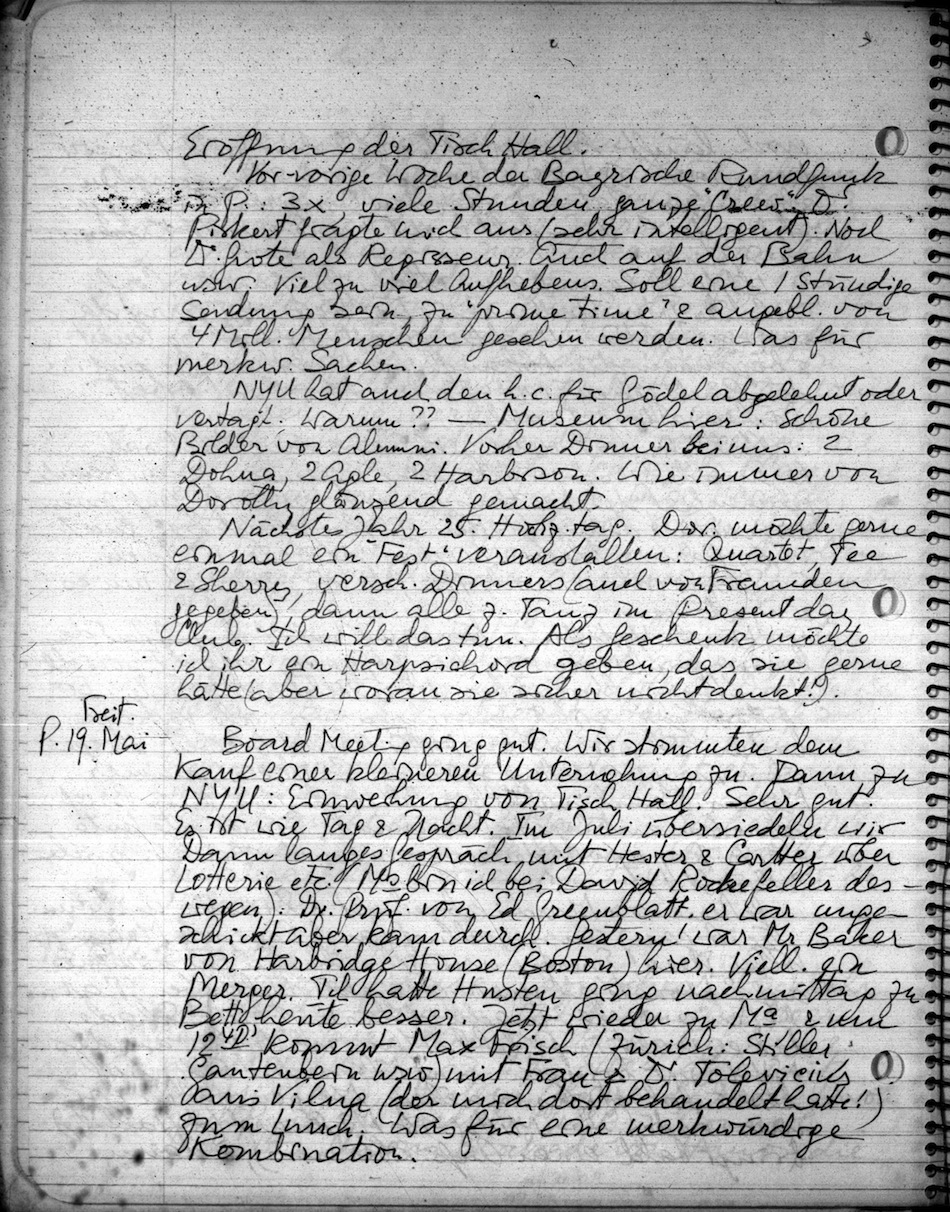 Eröffnung der Tisch Hall.
Vor-vorige Woche der Bayrische Rundfunk
in P.: 3x, viele Stunden, ganze "Crew". D.
fragte mich aus (sehr intelligent). Noch
D. Grote als Regisseur. Auch auf der Bahn
usw. Viel zu viel Aufhebens. Soll eine 1 Stündige
Sendung sein, zu "prime time" & angebl. von
4 Mill. Menschen gesehen werden. Was für
merkw. Sachen.
NYU hat auch den h.c. für Gödel abgelehnt oder
vertagt. Warum?? — Museum hier: Schöne
Bilder von Alumni. Vorher Dinner bei uns: 2
Dohna, 2 Harbison. Wie immer von
Dorothy glänzend gemacht.
Nächstes Jahr 25. Hochz.tag. Dor. möchte gerne
einmal ein "Fest" veranstalten: Quartet, Tee
& Sherry, versch. Dinners (auch von Freunden
gegeben), dann alle z. Tanz im Present day
Club. Ich will das tun. Als Geschenk möchte
ich ihr ein Harpsichord geben, das sie gerne
hätte (aber woran sie sicher nicht denkt!).
Freit.
P. 19. Mai
Board Meeting ging gut. Wir stimmten dem
Kauf einer kleineren Unternehmung zu. Dann zu
NYU: Einweihung von Tisch Hall. Sehr gut.
Es ist wie Tag & Nacht. Im Juli übersiedeln wir
Dann langes Gespräch mit Hester & Cartter über
Lotterie etc. (Mo bin ich bei David Rockefeller des-
wegen). Dr. Prüf. von Ed Greenblatt. er war unge-
schickt aber kam durch. Gestern war Mr Baker
von Harbridge House (Boston) hier. Viell. ein
Merger. Ich hatte Husten ging nachmittag zu
Bett, heute besser. Jetzt wieder zu Ma & um
12 kommt Max Frisch (Zürich: Stiller
Gantenbein usw) mit Frau & D.
aus Vilna (der mich dort behandelt hatte!)
zum Lunch. Was für eine merkwürdige
Kombination.